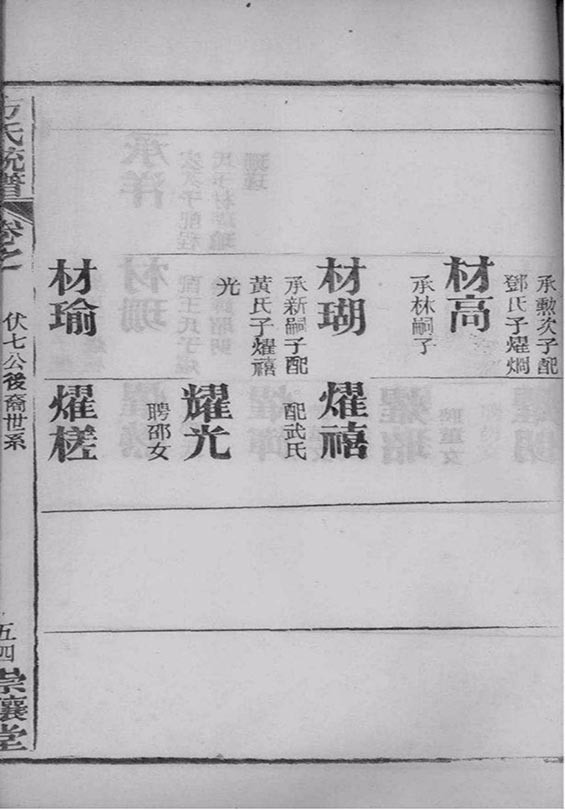 承勳次子配
鄧氏子燿烱
材高
承林嗣子
材瑚
承新嗣子配
黃氏子燿禧
光
材瑜
燿禧
配武氏
耀光
聘邵女
燿槎
方氏統譜
卷之
伏七公後裔世系
五四
崇讓堂